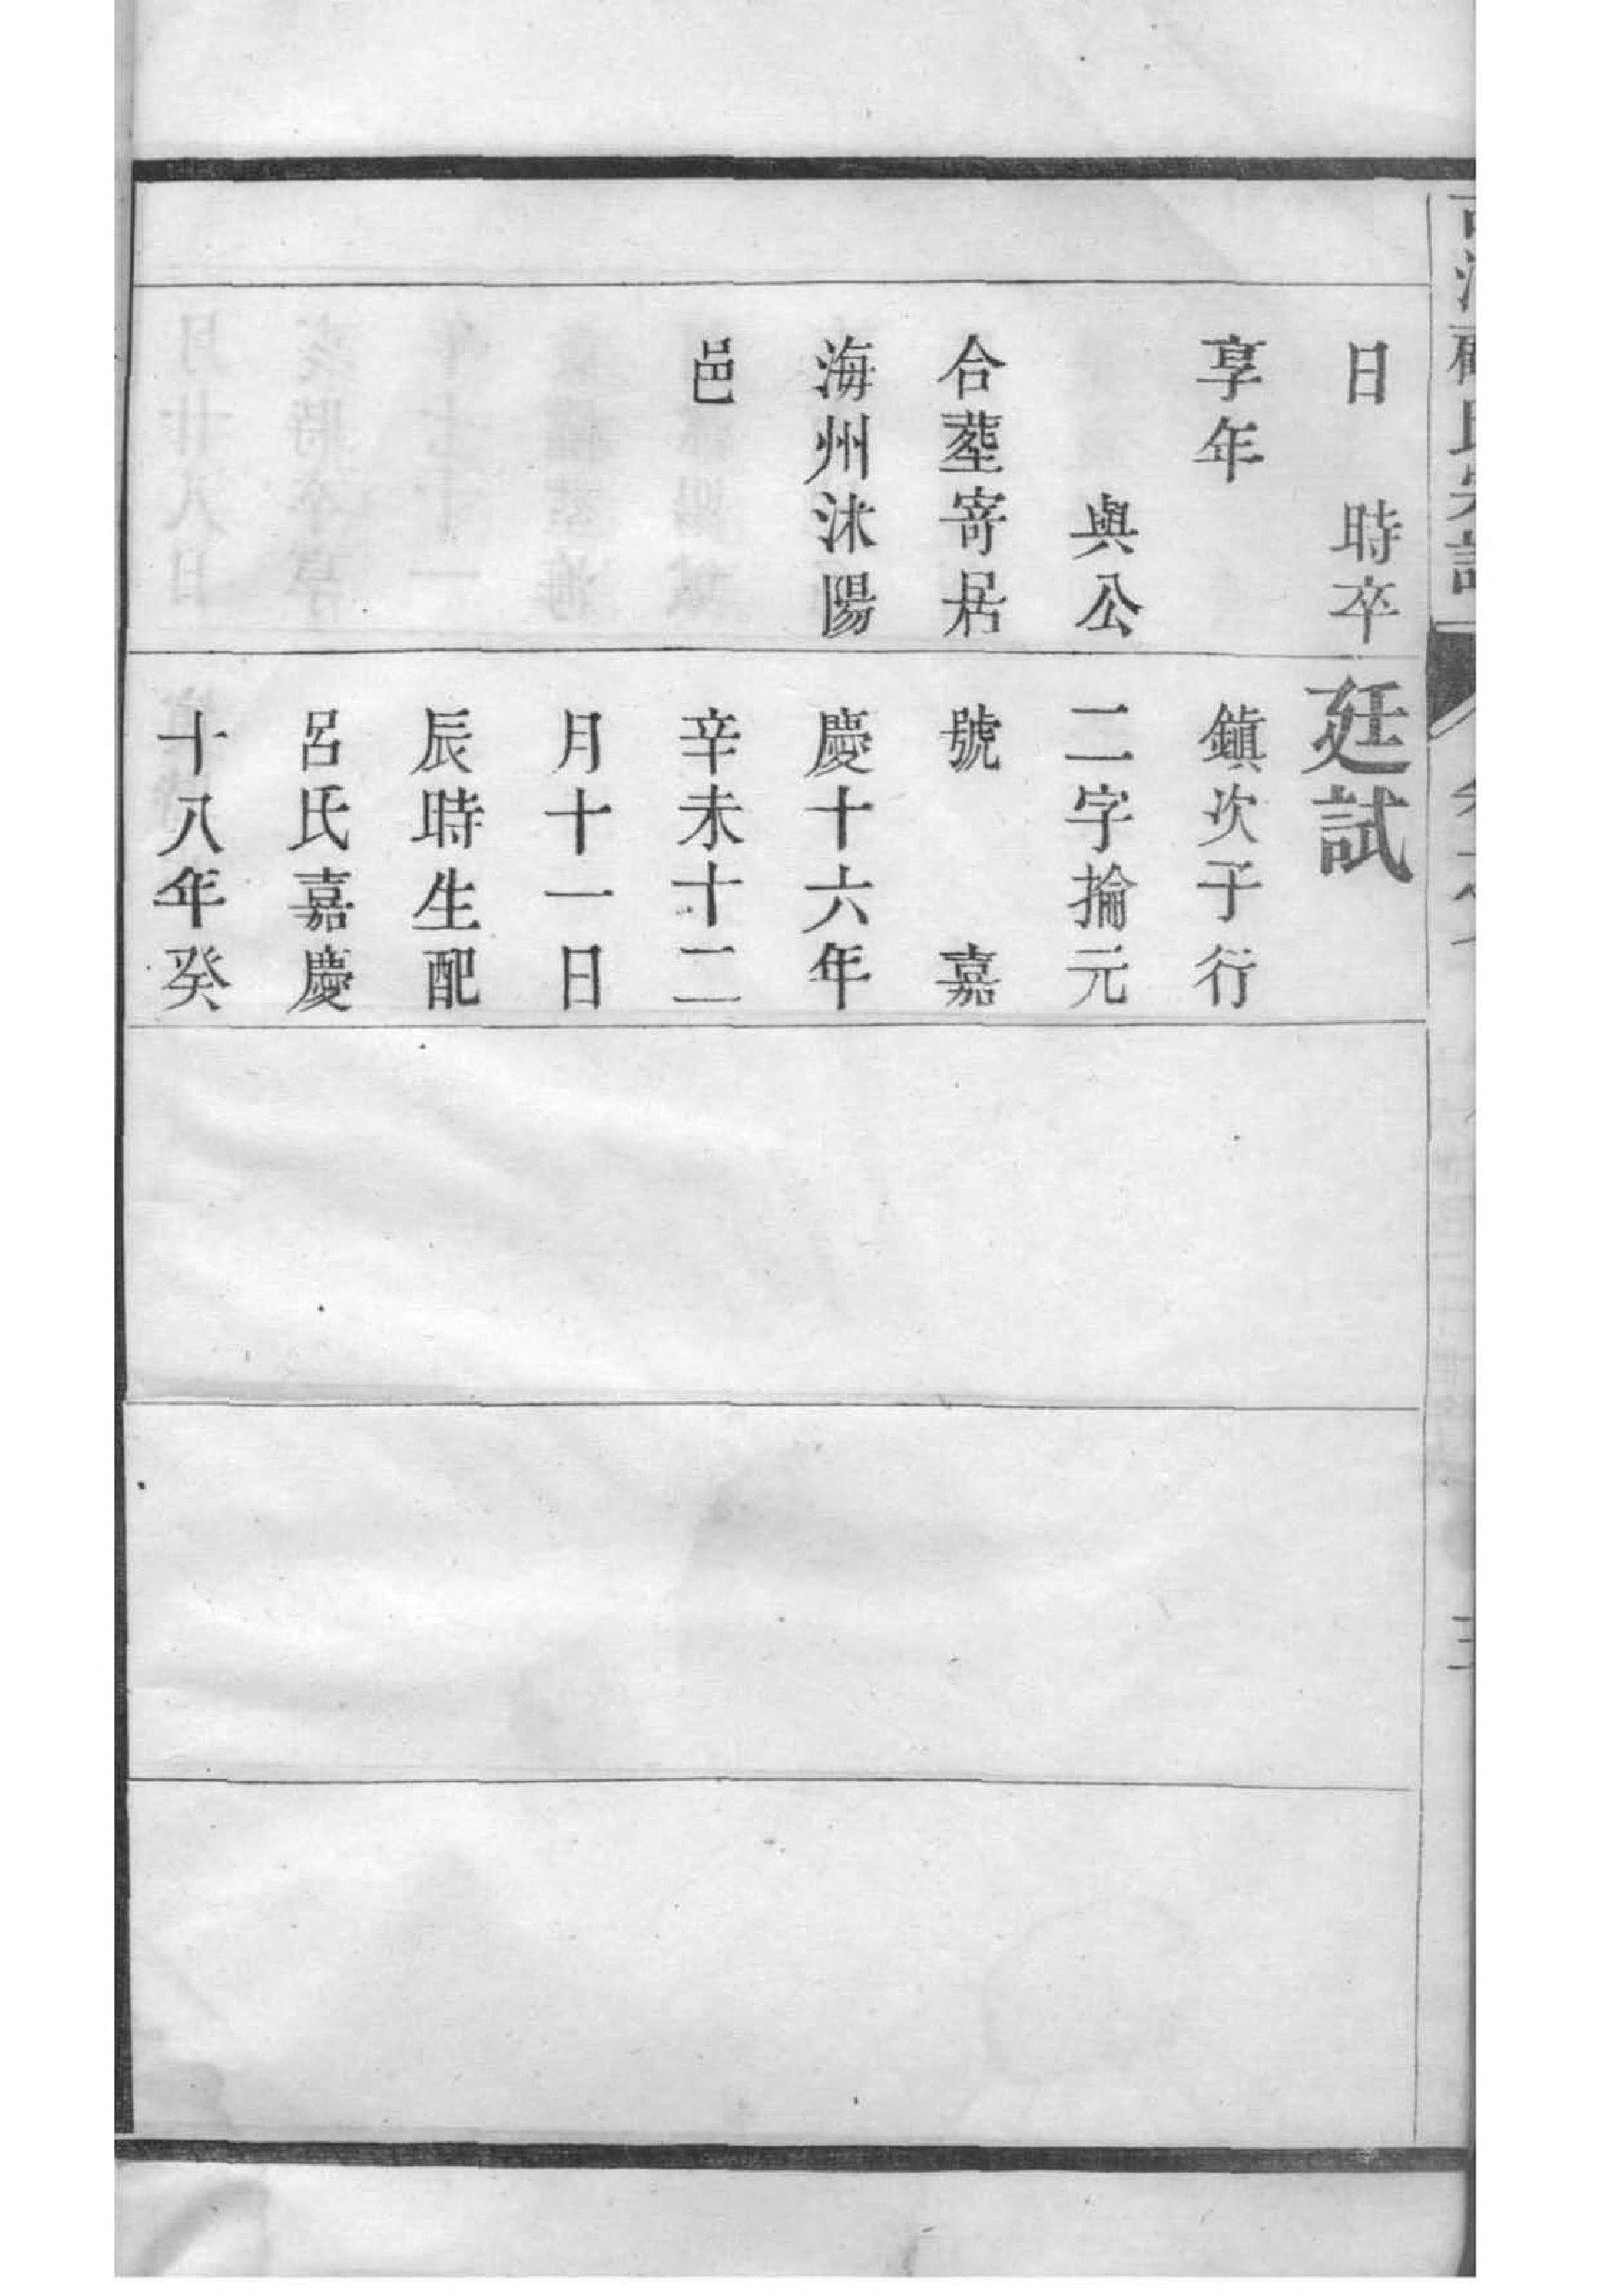 日　時卒
享年
與公
合塟寄居
海州沭陽
邑
廷試
鎮次子行
二字掄元
號　　嘉
慶十六年
辛未十二
月十一日
辰時生配
呂氏嘉慶
十八年癸